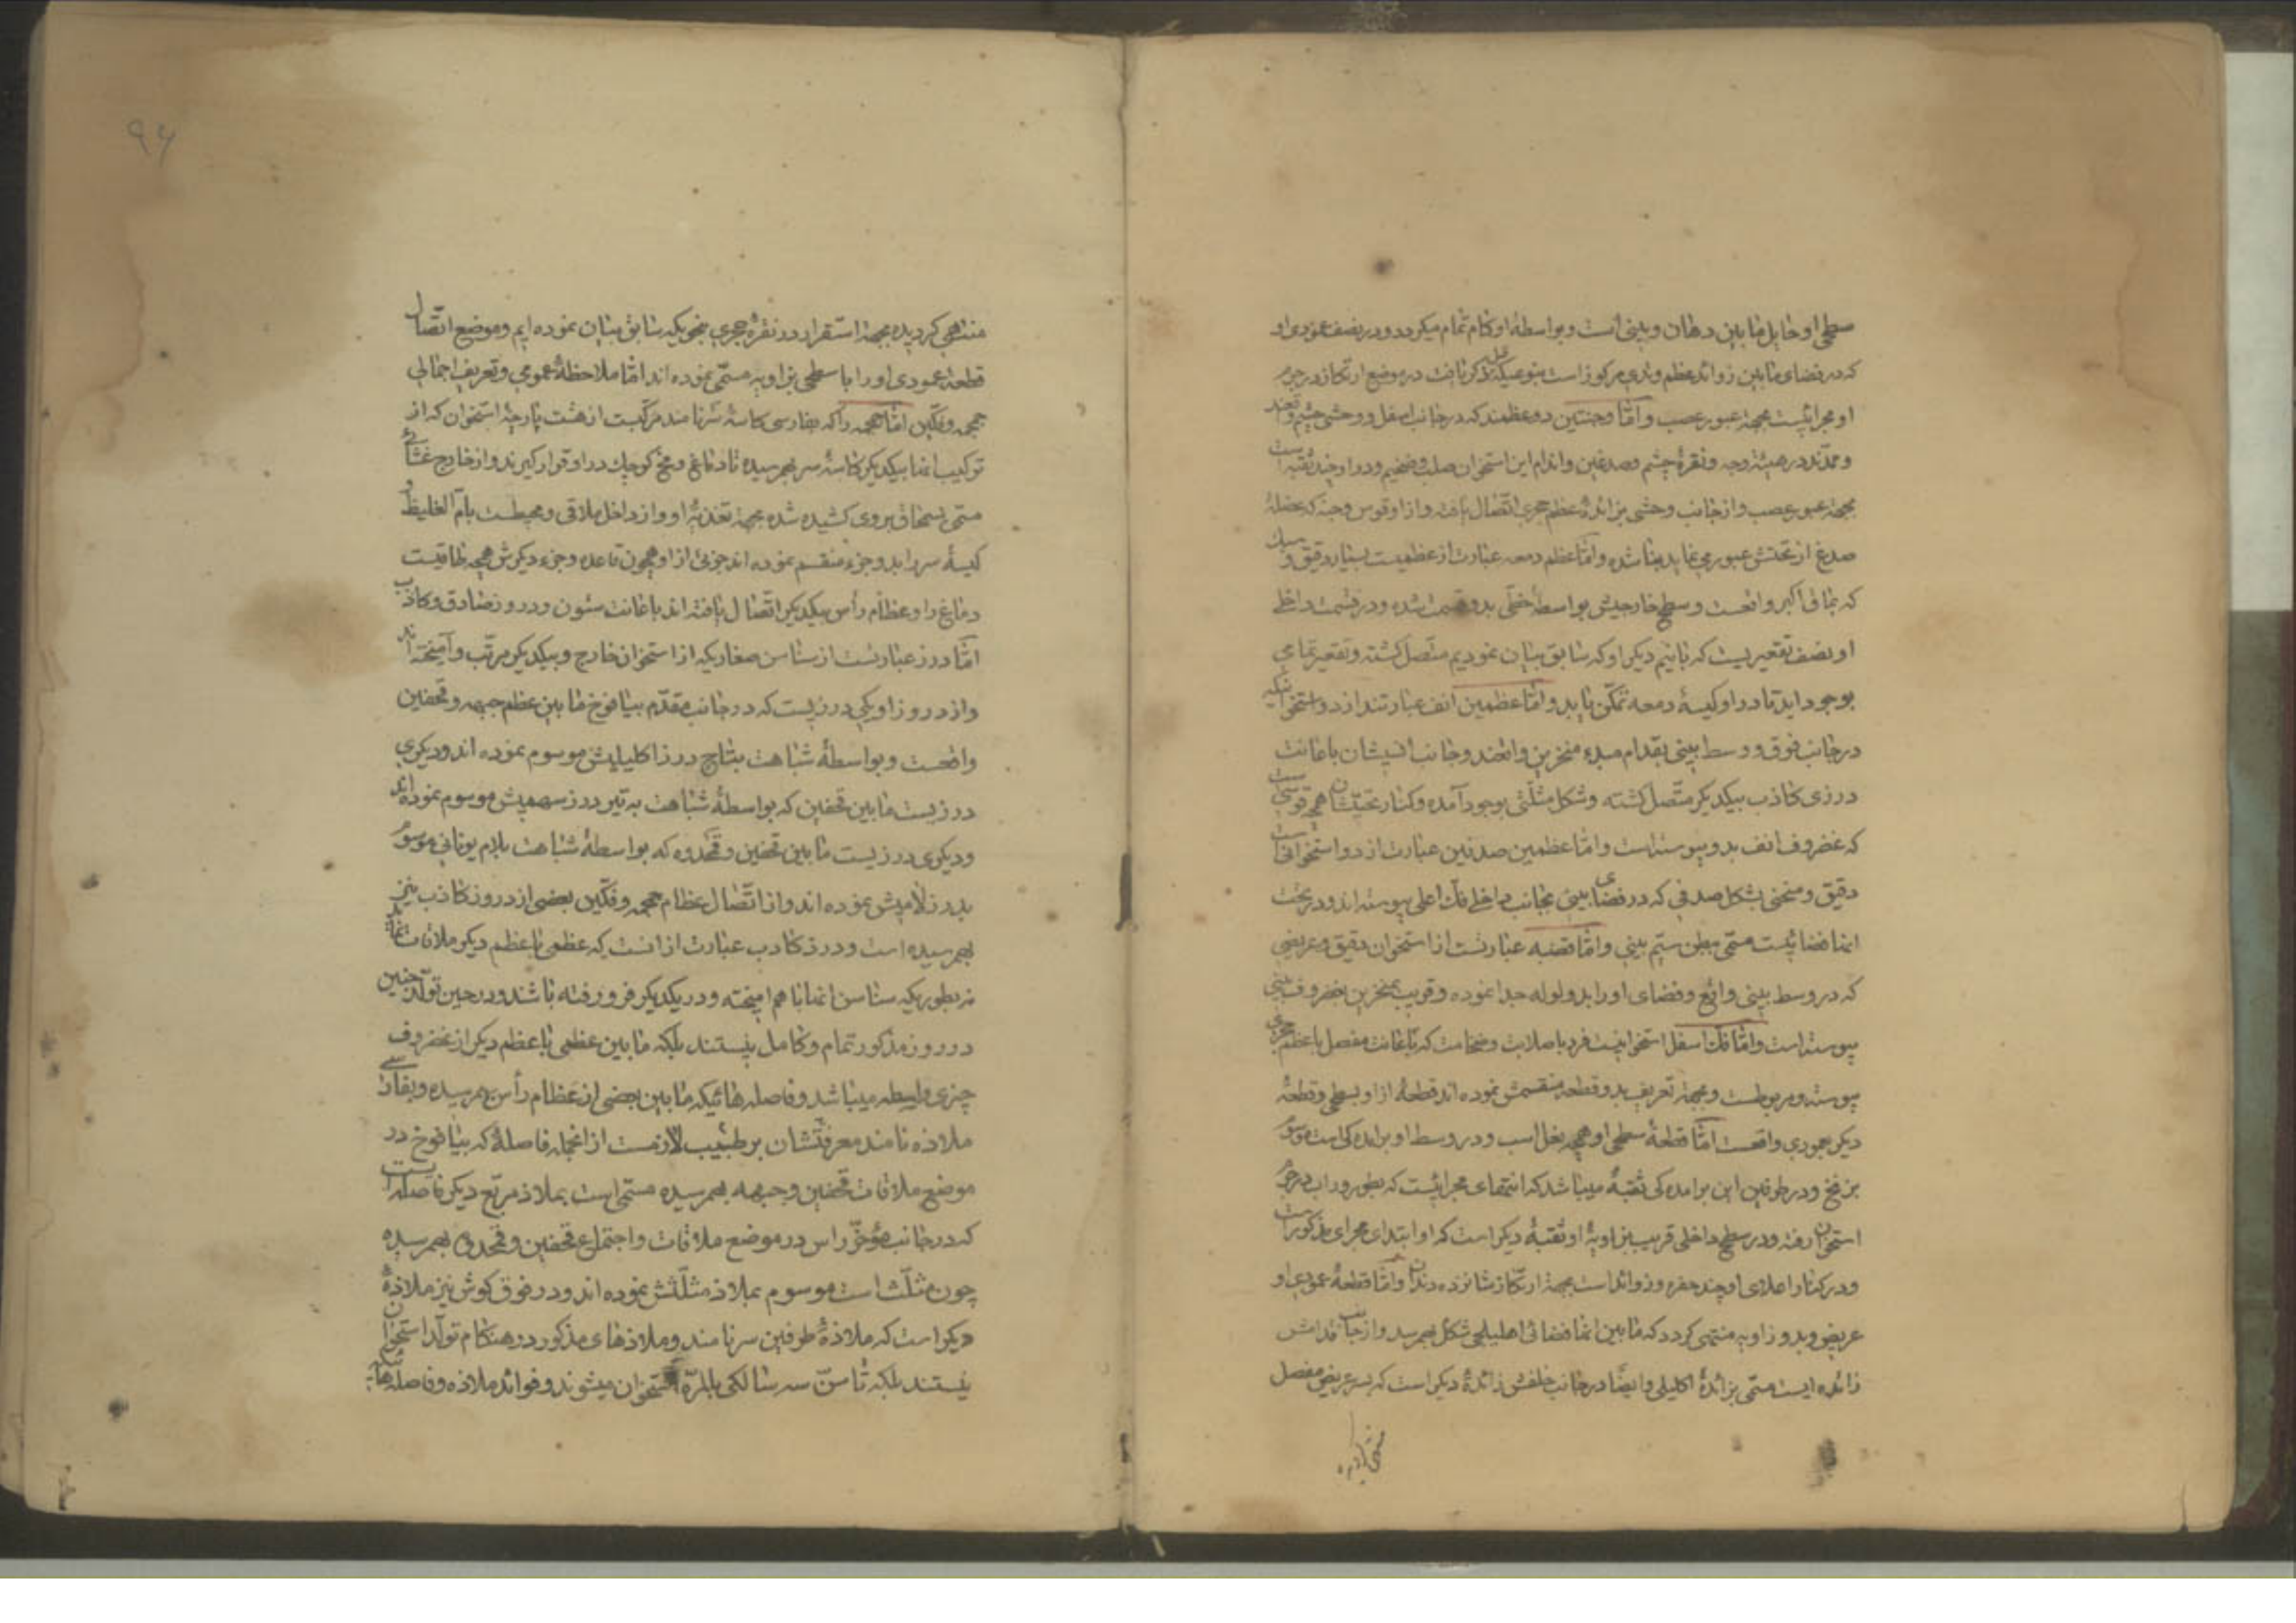 سطحی او حایل مابین دهان و بینی است و بواسطهٔ او کام تمام میکردد و در نصف عمودی او
که در فضای مابین زوائد عظم وتدی مرکوز است بنوعیکه ذکر یافت در موضع ارتکاز در جرم
او مجرائیست بجهة عبور عصب و امّا وجنتین دو عظمند که در جانب اسفل و وحشی چشم واقعند
و ممدّند در هیئة وجه و نقرهٔ چشم و صدغین و اندام این استخوان صلب و ضخیم و در او چند ثقبه است
بجهة عبور عصب و از جانب وحشی بزائدهٔ عظم حجری اتّصال یافته و از او قوس وجنه که عضلهٔ
صدغ از تحتش عبور می نماید بنا شده و امّا عظم دمعه عبارت از عظمیست بسیار رقیق و سبک
که بماق اکبر واقعست و سطح خارجیش بواسطهٔ خطّی بدو قسمت شده و در قسمت داخل
او نصف تقعیریست که با نیم دیکر او که سابق بیان نمودیم متصل کشته و تقعیر تمامی
بوجود اید تا در او کیسهٔ دمعه تمکّن یابد و امّا عظمین انف عبارتند از دو استخوانیکه
در جانب فوق و وسط بینی بقدام مبدء منخرین واقعند و جانب انسیشان باعانت
درزی کاذب بیکدیکر متّصل کشته و شکل مثلّثی بوجود آمده و کنار تحتیشان همچه قوسی است
که غضروف انف بدو پیوسته است و امّا عظمین صدفین عبارت از دو استخوانیست
دقیق و منحنی بشکل صدفی که در فضای بینی بجانب داخل فکّ اعلی پیوسته اند و در تحت
انها فضائیست مسمّی ببطن ستیم بینی و امّا قصبه عبارتست از استخوان دقیق و عریضی
که در وسط بینی واقع و فضای او را بدو لوله جدا نموده و قریب بمنخرین بغضروف بینی
پیوسته است و امّا فکّ اسفل استخوانیست فرد با صلابت و ضخامت که باعانت مفصل با عظم حجری
پیوسته و مربوطست و بجهة تعریف بدو قطعه منقسمش نموده اند قطعهٔ از او بسطحی و قطعهٔ
دیکر بعمودی واقعست امّا قطعهٔ سطحی او همچه نعل اسب و در وسط او برامده کی است موسوم
بزنخ و در طرفین این برامده کی ثقبهٔ میباشد که انتهای مجرائیست که بطور وراب در جرم
استخوان رفته و در سطح داخلی قریب بزاویهٔ او ثقبهٔ دیکر است که او ابتدای مجرای مذکور است
و در کنار اعلای او چند حفره و زوائد است بجهة ارتکاز شانزده دندان و امّا قطعهٔ عمودی او
عریض و بدو زاویه منتهی کردد که مابین انها فضائی اهلیلجی شکل بهمرسد و از جانب قدامش
زائده ایست مسمّی بزائدهٔ اکلیلی و ایضًا در جانب خلفش زائدهٔ دیکر است که بسر عریض مفصل
منتهی کردیده
٩٤
منتهی کردیده بجهة استقرار در نقرهٔ حجری بنحویکه سابق بیان نموده ایم و موضع اتّصال
قطعهٔ عمودی او را با سطحی بزاویه مسمّی نموده اند امّا ملاحظهٔ عمومی و تعریف اجمالی
جمجمه و فکّین امّا جمجمه را که بفارسی کاسهٔ سَر نامند مرکّبست از هشت پارچهٔ استخوان که از
ترکیب انها بیکدیکر کاسهٔ سر بهمرسیده تا دماغ و مخ کوچک در او قرار کیرند و از خارج غشائی
مسمّی بسمحاق بروی کشیده شده بجهة تغذیهٔ او و از داخل ملاقی و محیطست بامّ الغلیظ و
کیسهٔ سر را بدو جزء منقسم نموده اند جزئی از او همچون قاعده و جزء دیکرش همچه طاقیست
دماغ را و عظام رأس بیکدیکر اتّصال یافته اند باعانت شئون و دروز صادق و کاذب
امّا درز عبارتست از سناسن صغاریکه از استخوان خارج و بیکدیکر مرتّب و آمیخته اند
و از دروز او یکی درزیست که در جانب مقدّم بیافوخ مابین عظم جبهه و قحفین
واقعست و بواسطهٔ شباهت بتاج درز اکلیلیش موسوم نموده اند و دیکری
درزیست مابین قحفین که بواسطهٔ شباهت به تیر درز سهمیش موسوم نموده اند
و دیکری درزیست مابین قحفین و قَمَحدوه که بواسطهٔ شباهت بلام یونانی موسوم
بدرز لامیش نموده اند و از اتّصال عظام جمجمه و فکّین بعضی از دروز کاذب نیز
بهمرسیده است و درز کاذب عبارت از انست که عظمی با عظم دیکر ملاقات نماید
نه بطوریکه سناسن انها با هم امیخته و در یکدیکر فرو رفته باشند و در حین تولّد جنین
دروز مذکور تمام و کامل نیستند بلکه مابین عظمی با عظم دیکر از غضروف
چیزی واسطه میباشد و فاصله هائیکه مابین بعضی از عظام رأس بهمرسیده و بفارسی
ملاذه نامند معرفتشان بر طبیب لازمست از انجمله فاصلهٔ که بیافوخ در
موضع ملاقات قحفین و جبهه بهمرسیده مسمّی است بملاذ مربّع دیکر فاصله ایست
که در جانب مؤخّر راس در موضع ملاقات و اجتماع قحفین و قمحدوه بهمرسیده
چون مثلّث است موسوم بملاذ مثلّثش نموده اند و در فوق کوش نیز ملاذهٔ
دیکر است که ملاذهٔ طرفین سر نامند و ملاذهای مذکور در هنکام تولّد استخوان
نیستند بلکه تا سنّ سه سالکی بالمرّه استخوان میشوند و فوائد ملاذه و فاصله هائیکه